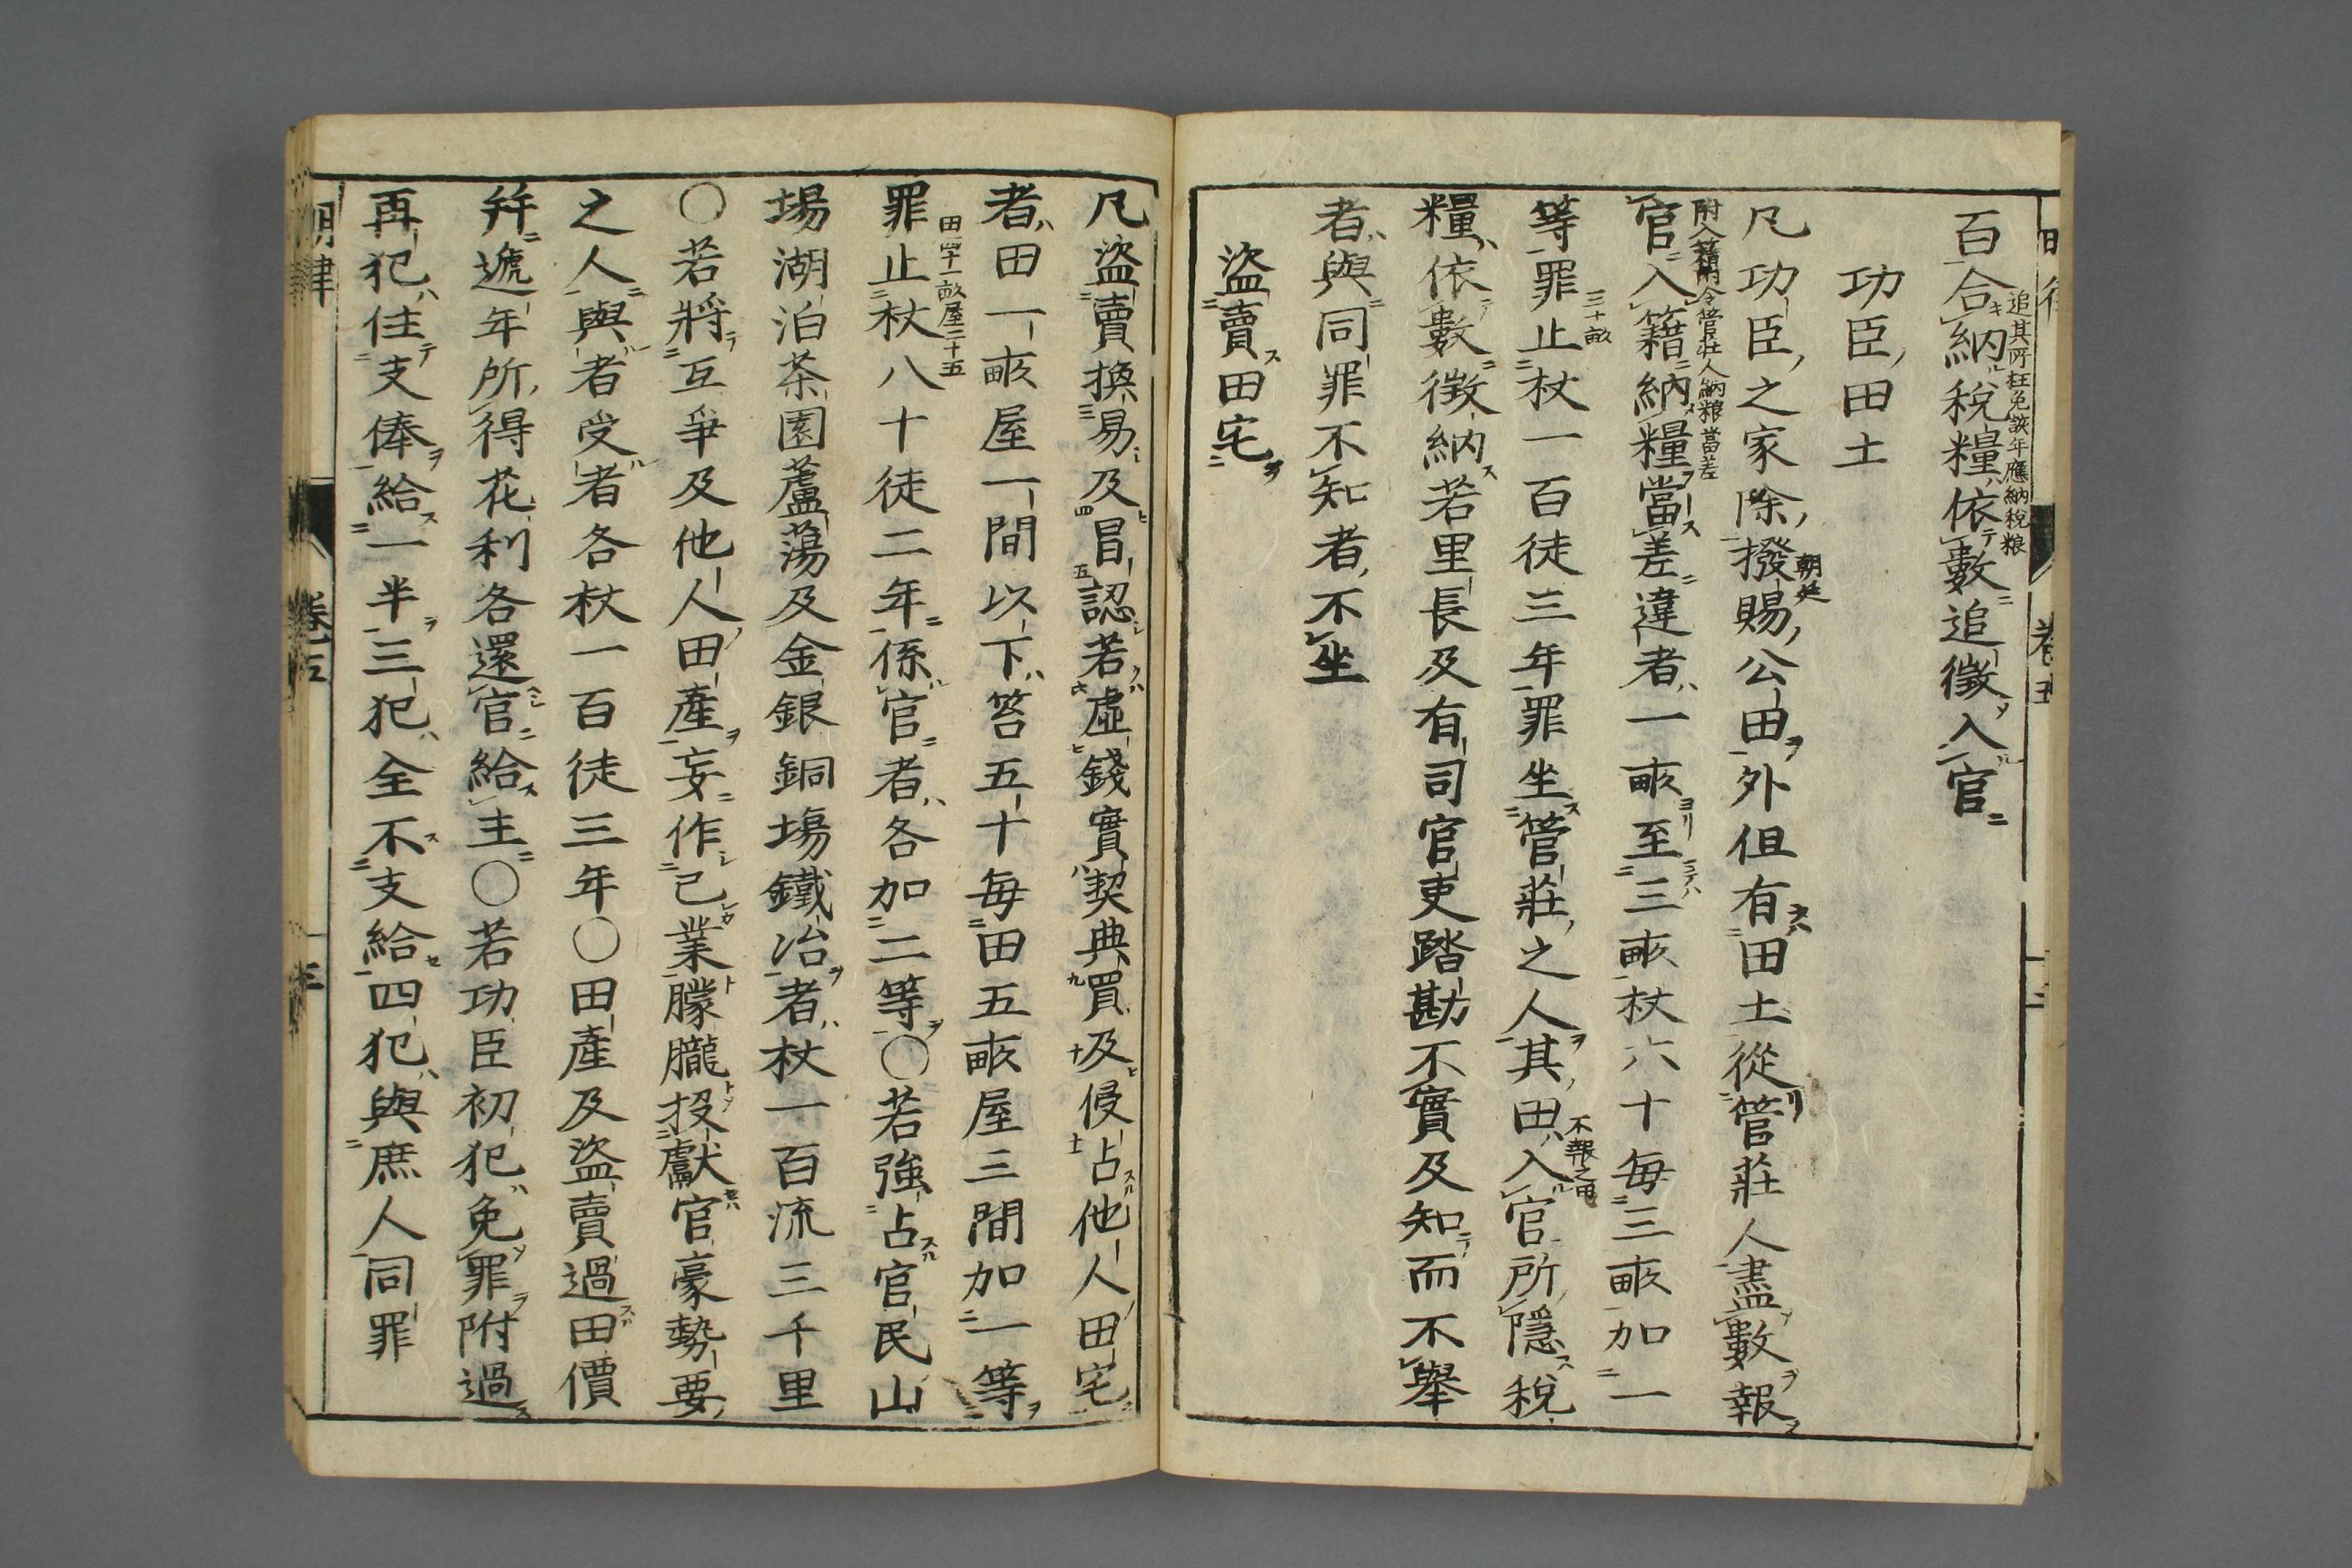 百合納税糧依數追徵入官
追其所枉免該年應納稅粮
功臣田土
凡功臣之家除撥賜公田外但有田土從管莊人盡數報
朝廷
官入籍納糧當差違者一畝至三畝杖六十每三畝加一
附入籍冊令管莊人納粮當差
等罪止杖一百徒三年罪坐管莊之人其田入官所隱稅
三十畝
不報之田
糧依數徵納若里長及有司官吏踏勘不實及知而不舉
者與同罪不知者不坐
盜賣田宅
凡盜賣換易及冒認若虛錢實契典買及侵占他人田宅
者田一畝屋一間以下笞五十每田五畝屋三間加一等
罪止杖八十徒二年係官者各加二等○若強占官民山
田四十一畝屋二十五
場湖泊茶園蘆蕩及金銀銅場鐵冶者杖一百流三千里
○若將互爭及他人田產妄作己業朦朧投獻官豪勢要
之人與者受者各杖一百徒三年○田產及盜賣過田價
幷遞年所得花利各還官給主○若功臣初犯免罪附過
再犯住支俸給一半三犯全不支給四犯與庶人同罪
明律
卷五